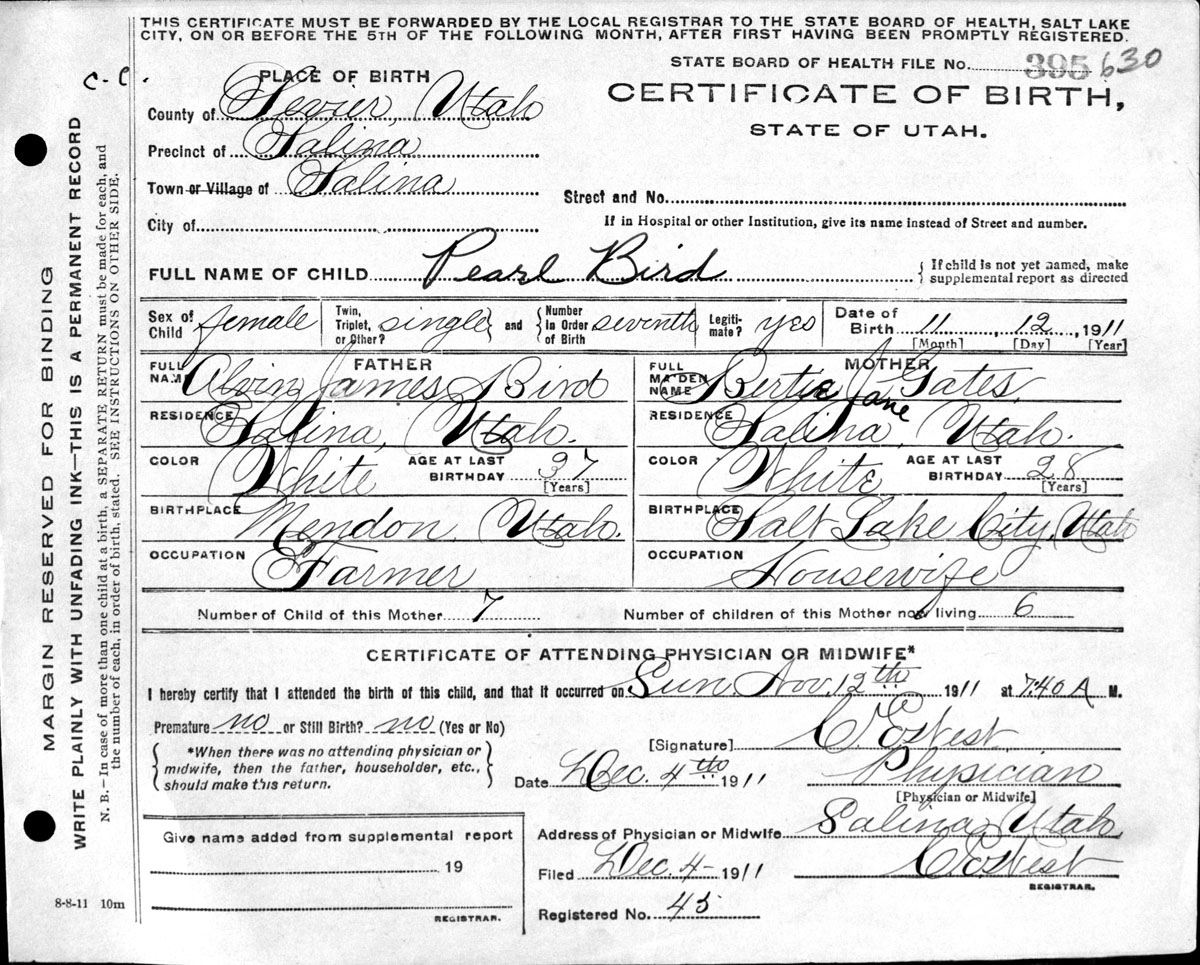 THIS CERTIFICATE MUST BE FORWARDED BY THE LOCAL REGISTRAR TO THE STATE BOARD OF HEALTH, SALT LAKE
CITY, ON OR BEFORE THE 5TH OF THE FOLLOWING MONTH, AFTER FIRST HAVING BEEN PROMPTLY REGISTERED.
STATE BOARD OF HEALTH FILE No. 395 630
C-C.
PLACE OF BIRTH
CERTIFICATE OF BIRTH,
STATE OF UTAH.
County of Sevier, Utah
Precinct of Salina
Town or Village of Salina
Street and No.
City of
If in Hospital or other Institution, give its name instead of Street and number.
FULL NAME OF CHILD Pearl Bird { If child is not yet named, make
supplemental report as directed
Sex of Child female Twin, Triplet, or Other? single } and { Number In Order of Birth seventh Legiti-mate? yes Date of Birth 11 12, 1911
[Month] [Day] [Year]
FATHER MOTHER
FULL NAME Alvin James Bird FULL MAIDEN NAME Bertie Jane Gates,
RESIDENCE Salina, Utah. RESIDENCE Salina, Utah.
COLOR White AGE AT LAST BIRTHDAY 37 [Years] COLOR White AGE AT LAST BIRTHDAY 28 [Years]
BIRTHPLACE Mendon, Utah. BIRTHPLACE Salt Lake City, Utah
OCCUPATION Farmer OCCUPATION Housewife
Number of Child of this Mother 7 Number of children of this Mother now living 6
CERTIFICATE OF ATTENDING PHYSICIAN OR MIDWIFE*
I hereby certify that I attended the birth of this child, and that it occurred on Sun Nov. 12th 1911 at 7:40 A M.
Premature no or Still Birth? no (Yes or No)
*When there was no attending physician or
midwife, then the father, householder, etc.,
should make this return.
[Signature] C. E. West
Date Dec. 4th 1911 Physician
[Physician or Midwife]
Give name added from supplemental report
19
REGISTRAR.
Address of Physician or Midwife Salina Utah
Filed Dec. 4- 1911 C E West
REGISTRAR.
Registered No. 45
8-8-11 10m
MARGIN RESERVED FOR BINDING
WRITE PLAINLY WITH UNFADING INK—THIS IS A PERMANENT RECORD
N. B.—In case of more than one child at a birth, a SEPARATE RETURN must be made for each, and
the number of each, in order of birth, stated. SEE INSTRUCTIONS ON OTHER SIDE.